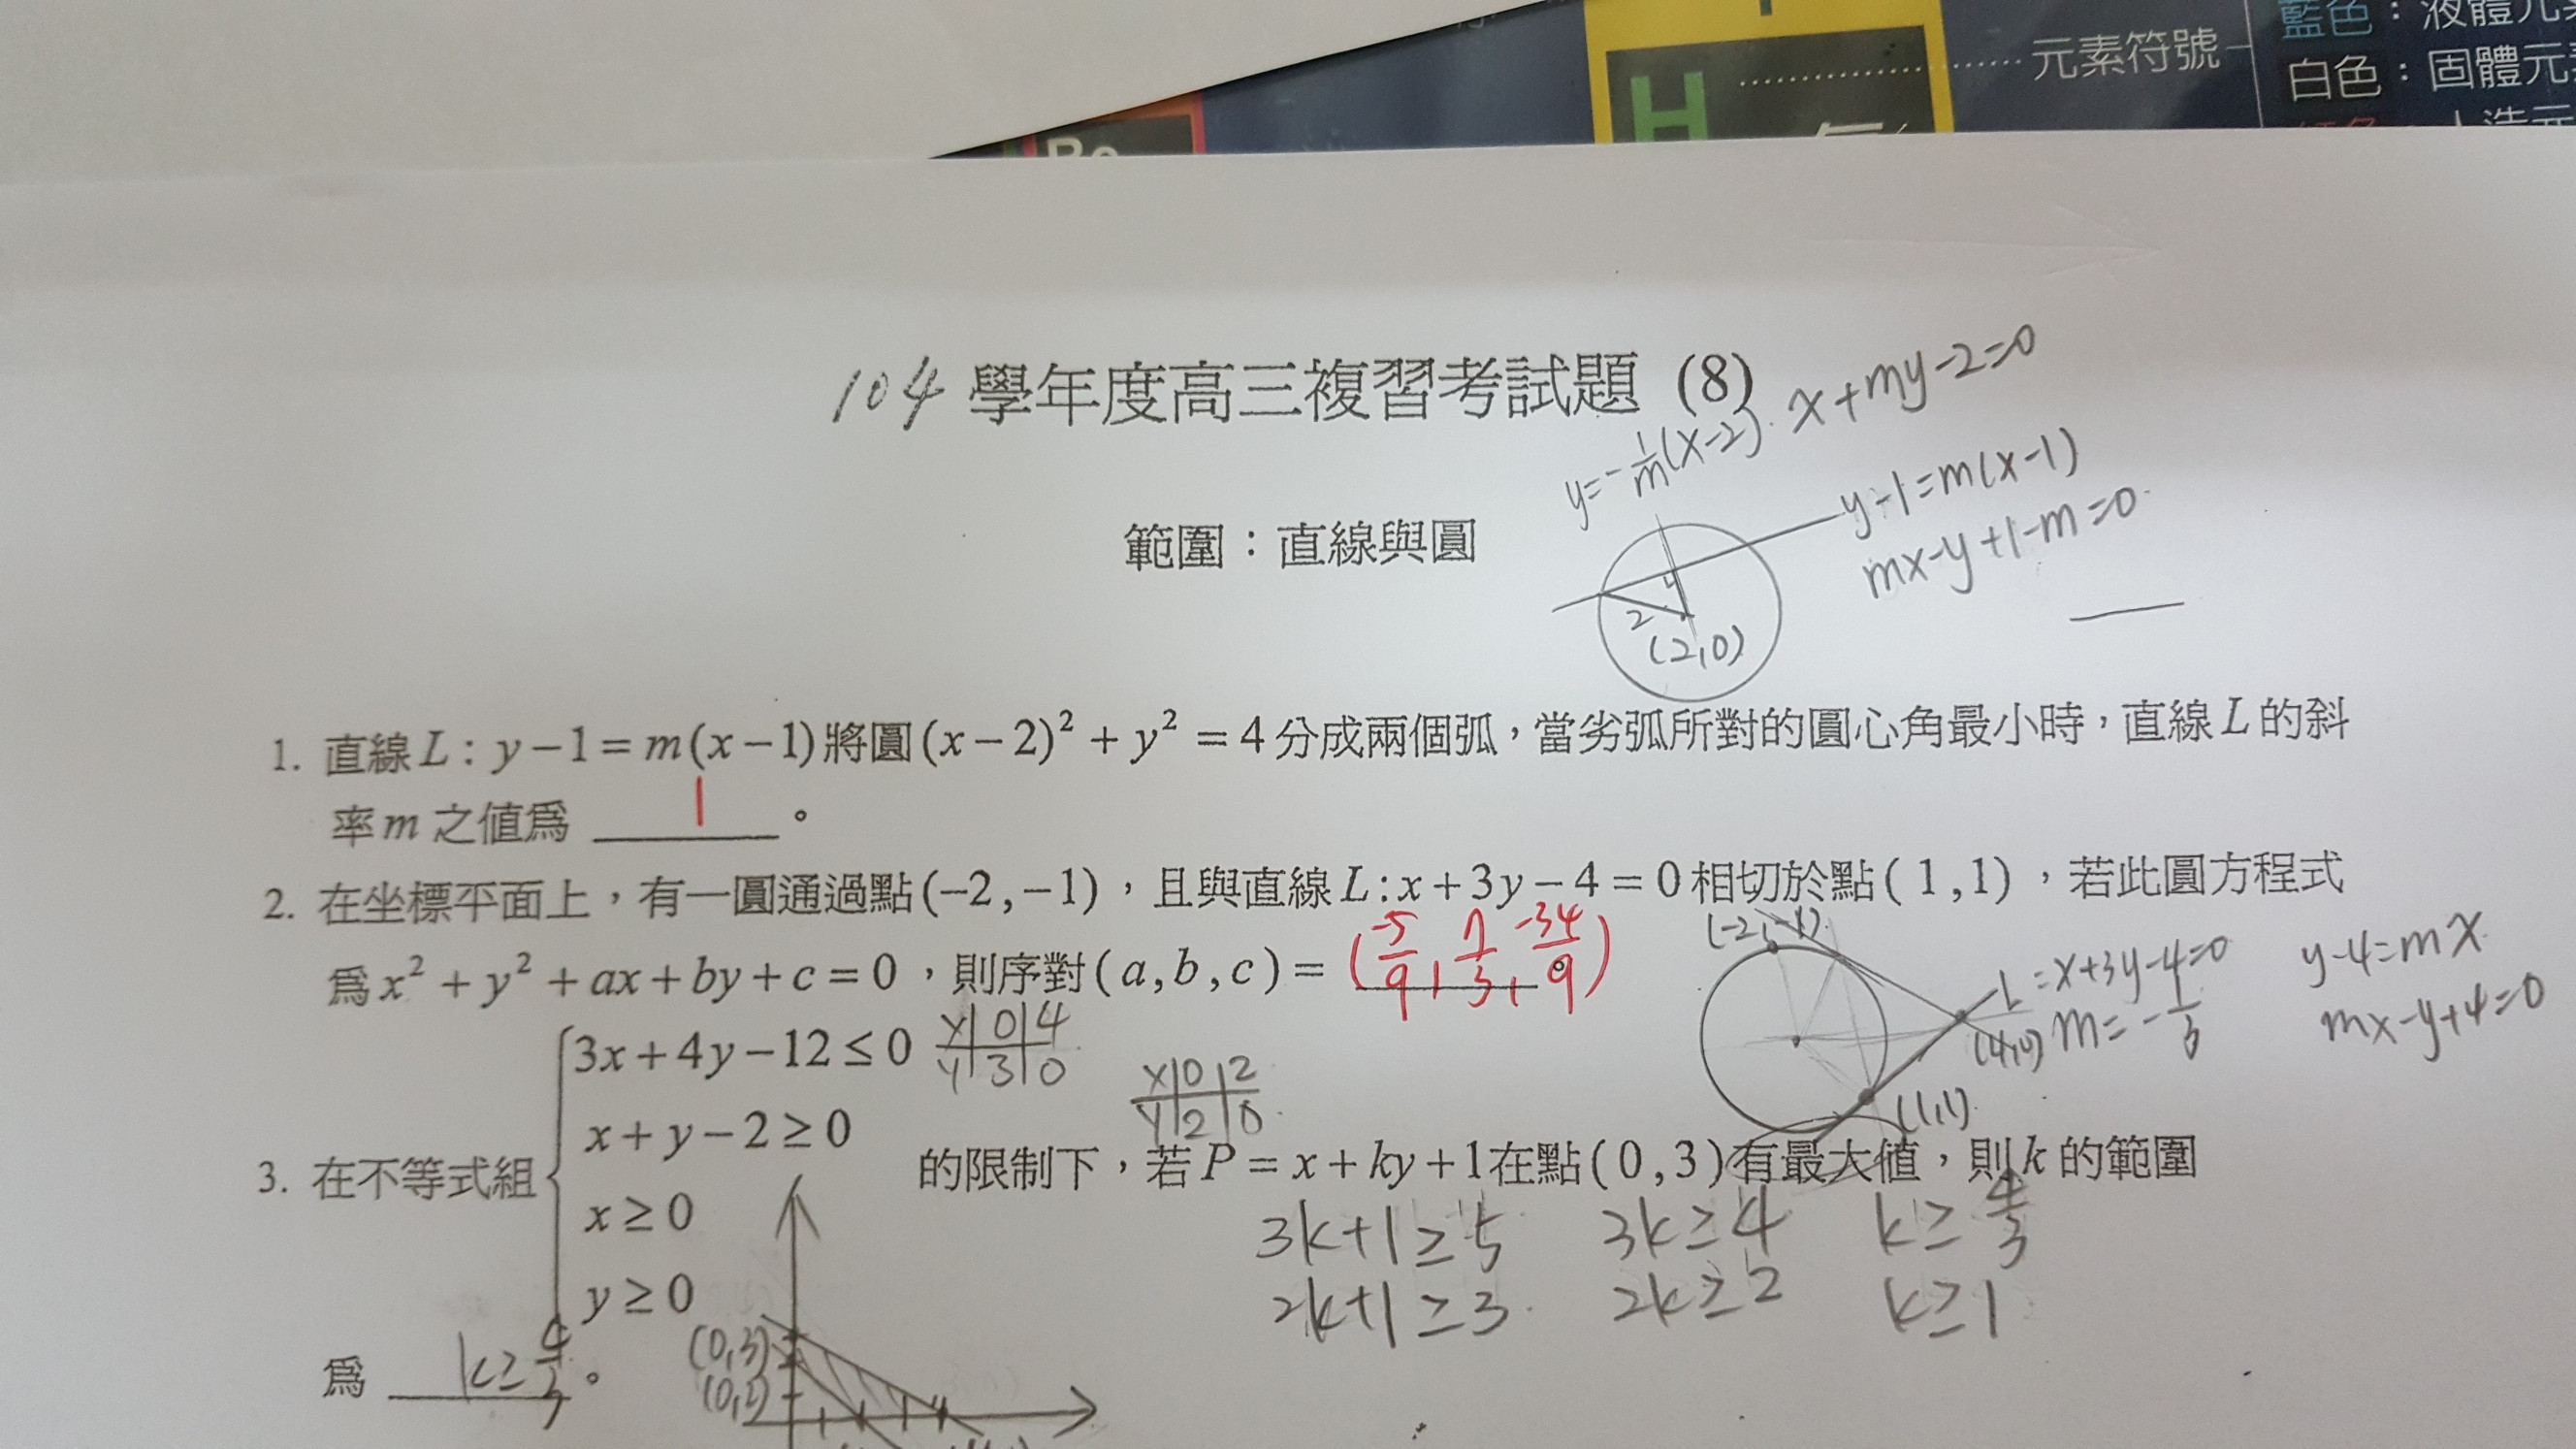 元素符號
藍色：液體元
白色：固體元
H
104 學年度高三複習考試題 (8)
y=-1/m(x-2). x+my-2=0
範圍：直線與圓
y-1=m(x-1)
mx-y+1-m=0
2
(2,0)
1. 直線L：y-1=m(x-1)將圓(x-2)²+y²=4分成兩個弧，當劣弧所對的圓心角最小時，直線L的斜
率m之值為 1 。
2. 在坐標平面上，有一圓通過點(-2,-1)，且與直線L:x+3y-4=0相切於點(1,1)，若此圓方程式
為x²+y²+ax+by+c=0，則序對(a,b,c)= (-5/9, 7/3, -34/9)。
(-2,-1)
L=x+3y-4=0
(4,0) m=-1/3
(1,1)
y-4=mx
mx-y+4=0
3. 在不等式組
3x+4y-12≤0
x+y-2≥0
x≥0
y≥0
x 0 4
y 3 0
x 0 2
y 2 0
的限制下，若P=x+ky+1在點(0,3)有最大值，則k的範圍
3k+1≥5 3k≥4 k≥4/3
2k+1≥3 2k≥2 k≥1
為 k≥4/3 。
(0,3)
(0,2)